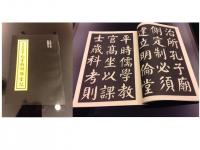 治所孔子廟
側定制必須
建立明倫堂
平時儒學教
官高坐以課
士歲科考則